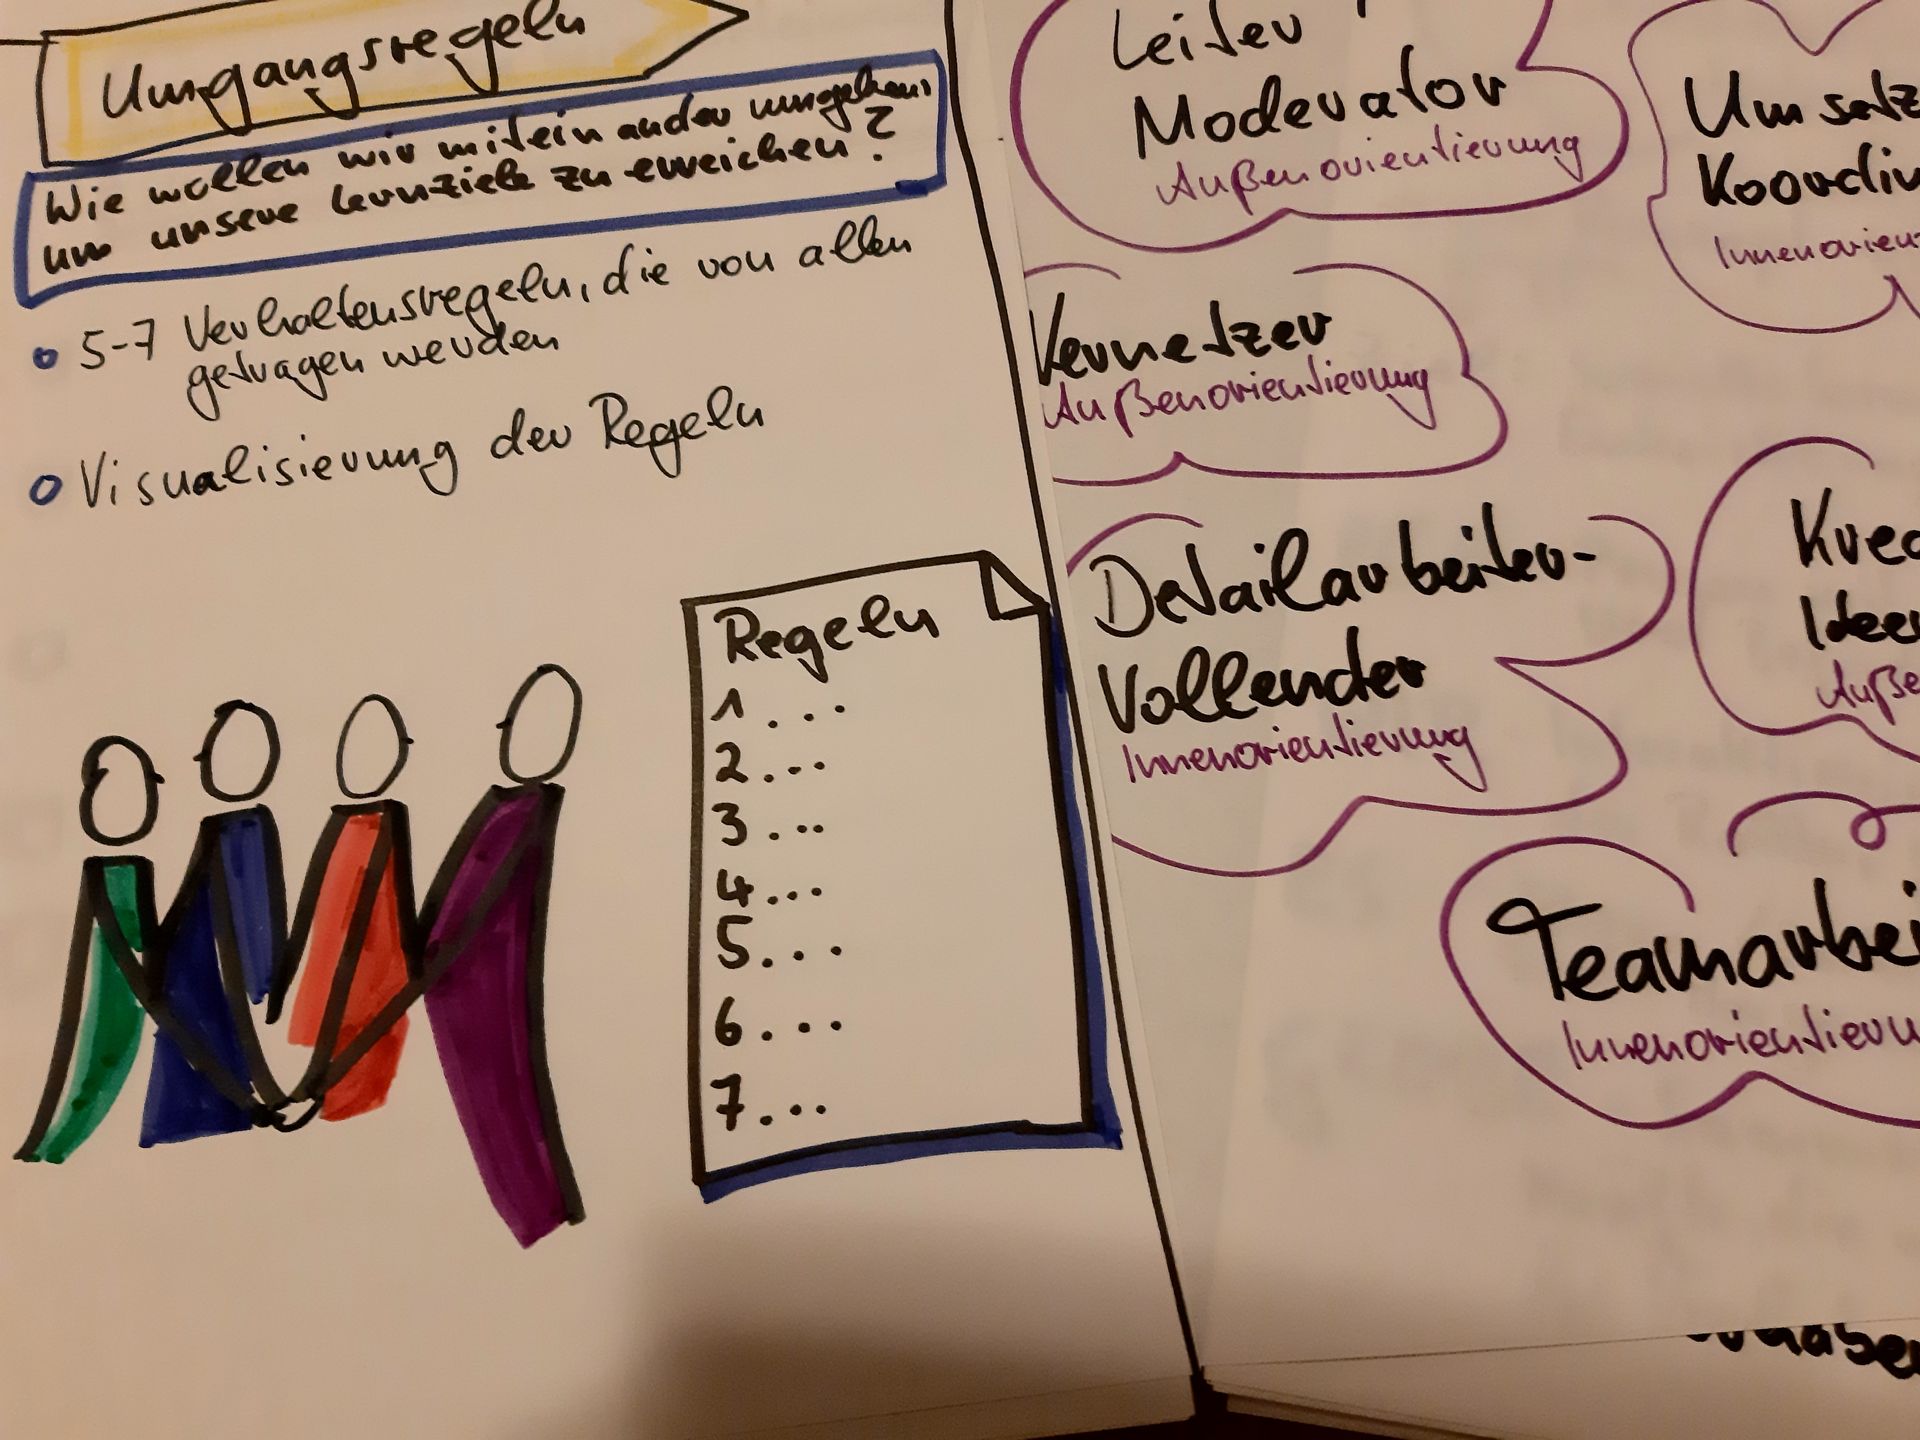 Umgangsregeln
Wie wollen wir miteinander umgehen,
um unsere Lernziele zu erreichen?
5-7 Verhaltensregeln, die von allen
getragen werden
Visualisierung der Regeln
Regeln
1...
2...
3...
4...
5...
6...
7...
Leiter
Moderator
Außenorientierung
Umsetz
Koordin
Innenorient
Vernetzer
Außenorientierung
Detailarbeiter-
Vollender
Innenorientierung
Krea
Ideen
Auße
Teamarbei
Innenorientierun